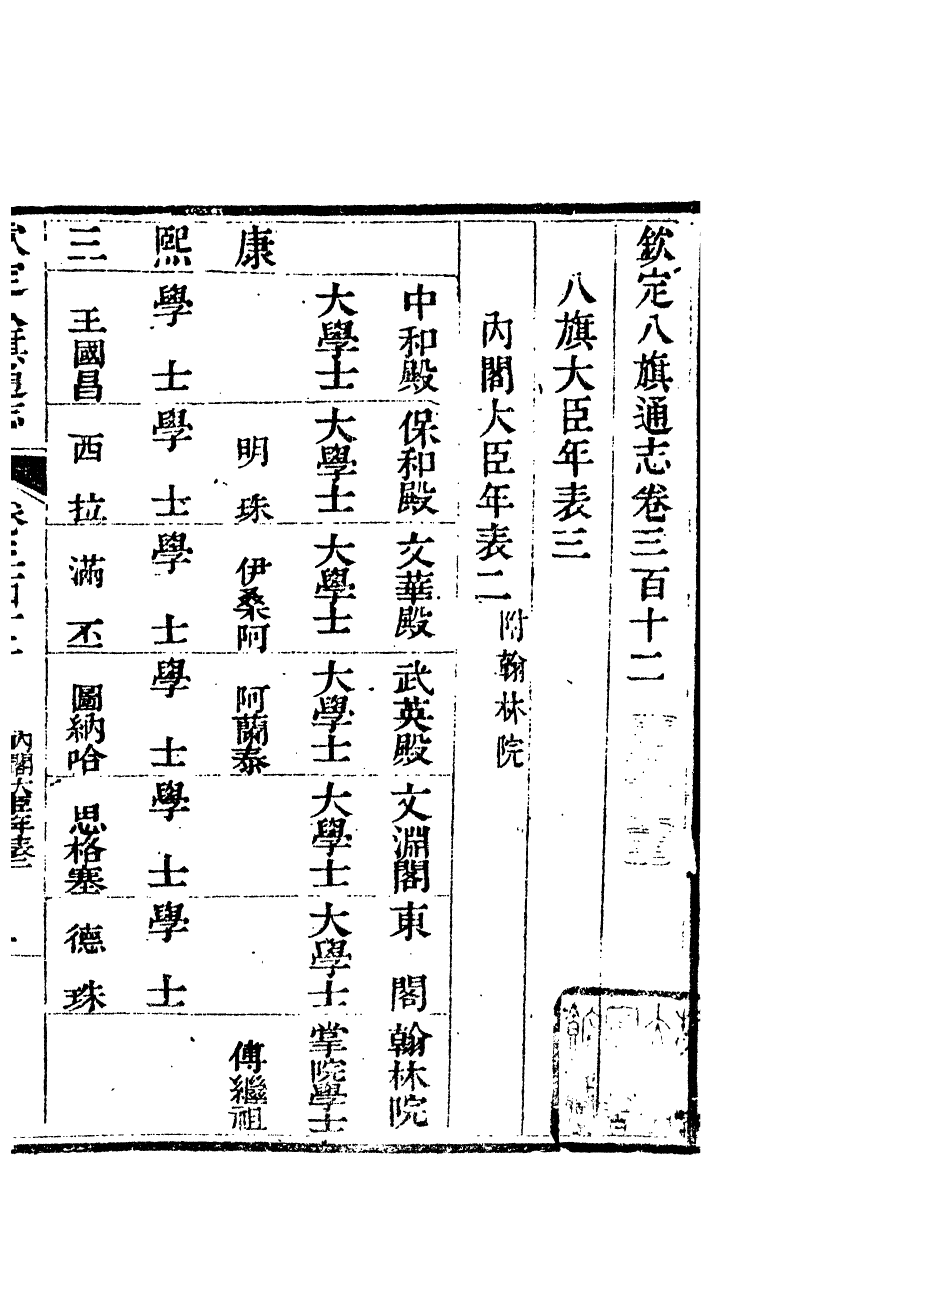 欽定八旗通志卷三百十二
八旗大臣年表三
內閣大臣年表二附翰林院
中和殿 保和殿 文華殿 武英殿 文淵閣 東閣 翰林院
大學士 大學士 大學士 大學士 大學士 大學士 掌院學士
康 明珠 伊桑阿 阿蘭泰 傅繼祖
熙 學士 學士 學士 學士 學士 學士
三 王國昌 西拉 滿丕 圖納哈 思格塞 德珠
內閣大臣年表二